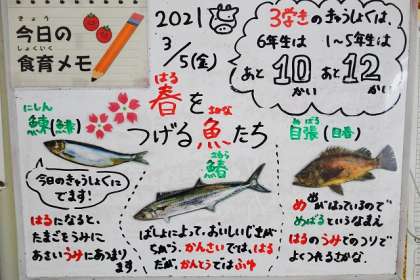 きょう
今日の
しょくいく
食育メモ
2021
3/5(金)
3学きのきゅうしょくは、
6年生は
あと10かい
1〜5年生は
あと12かい
はる
春を
つげる魚たち
さかな
にしん
鰊(鯡)
今日のきゅうしょくに
でます!
はるになると、
たまごをうみに
あさいうみにあつまり
ます。
さわら
鰆
ばしょによって、おいしいじきが
ちがう。かんさいでは、はる
だが、かんとうではふゆ
めばる
目張(目春)
めがはっているので
めばるというなまえ
はるのうみでのつりで
よくつれるさかな。